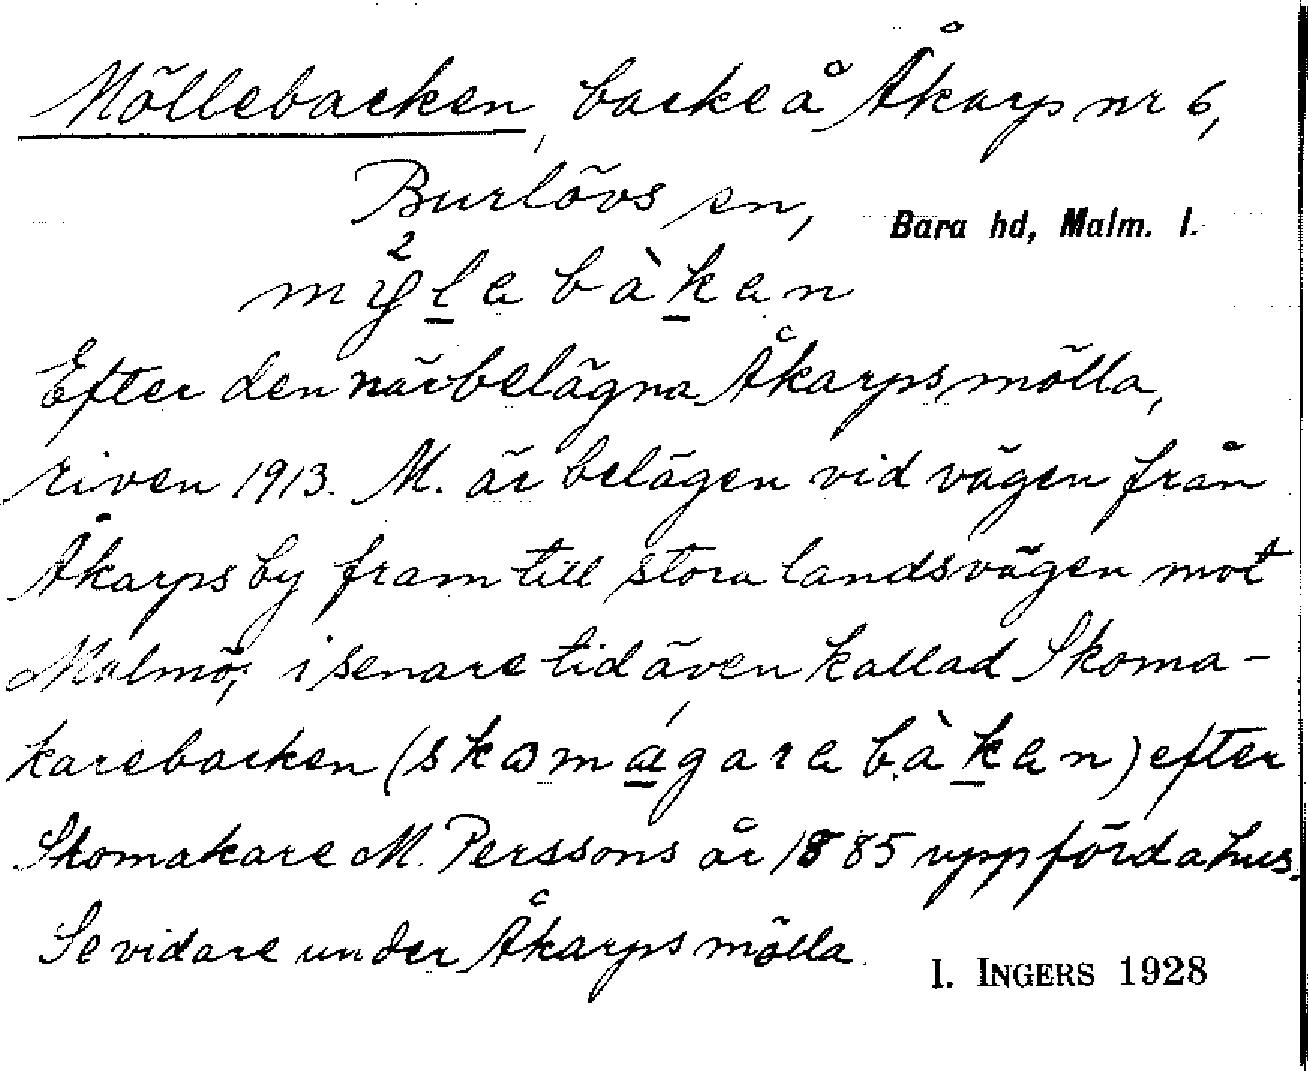 Möllebacken, backe å Åkarp nr 6,
Burlövs sn, Bara hd, Malm. l.
mỹ²la bàkan
Efter den närbelägna Åkarps mölla,
riven 1913. M. är belägen vid vägen från
Åkarps by fram till stora landsvägen mot
Malmö; i senare tid även kallad Skoma-
karebacken (skomágara bàkan) efter
Skomakare M. Perssons år 1885 uppförda hus.
Se vidare under Åkarps mölla.
I. INGERS 1928